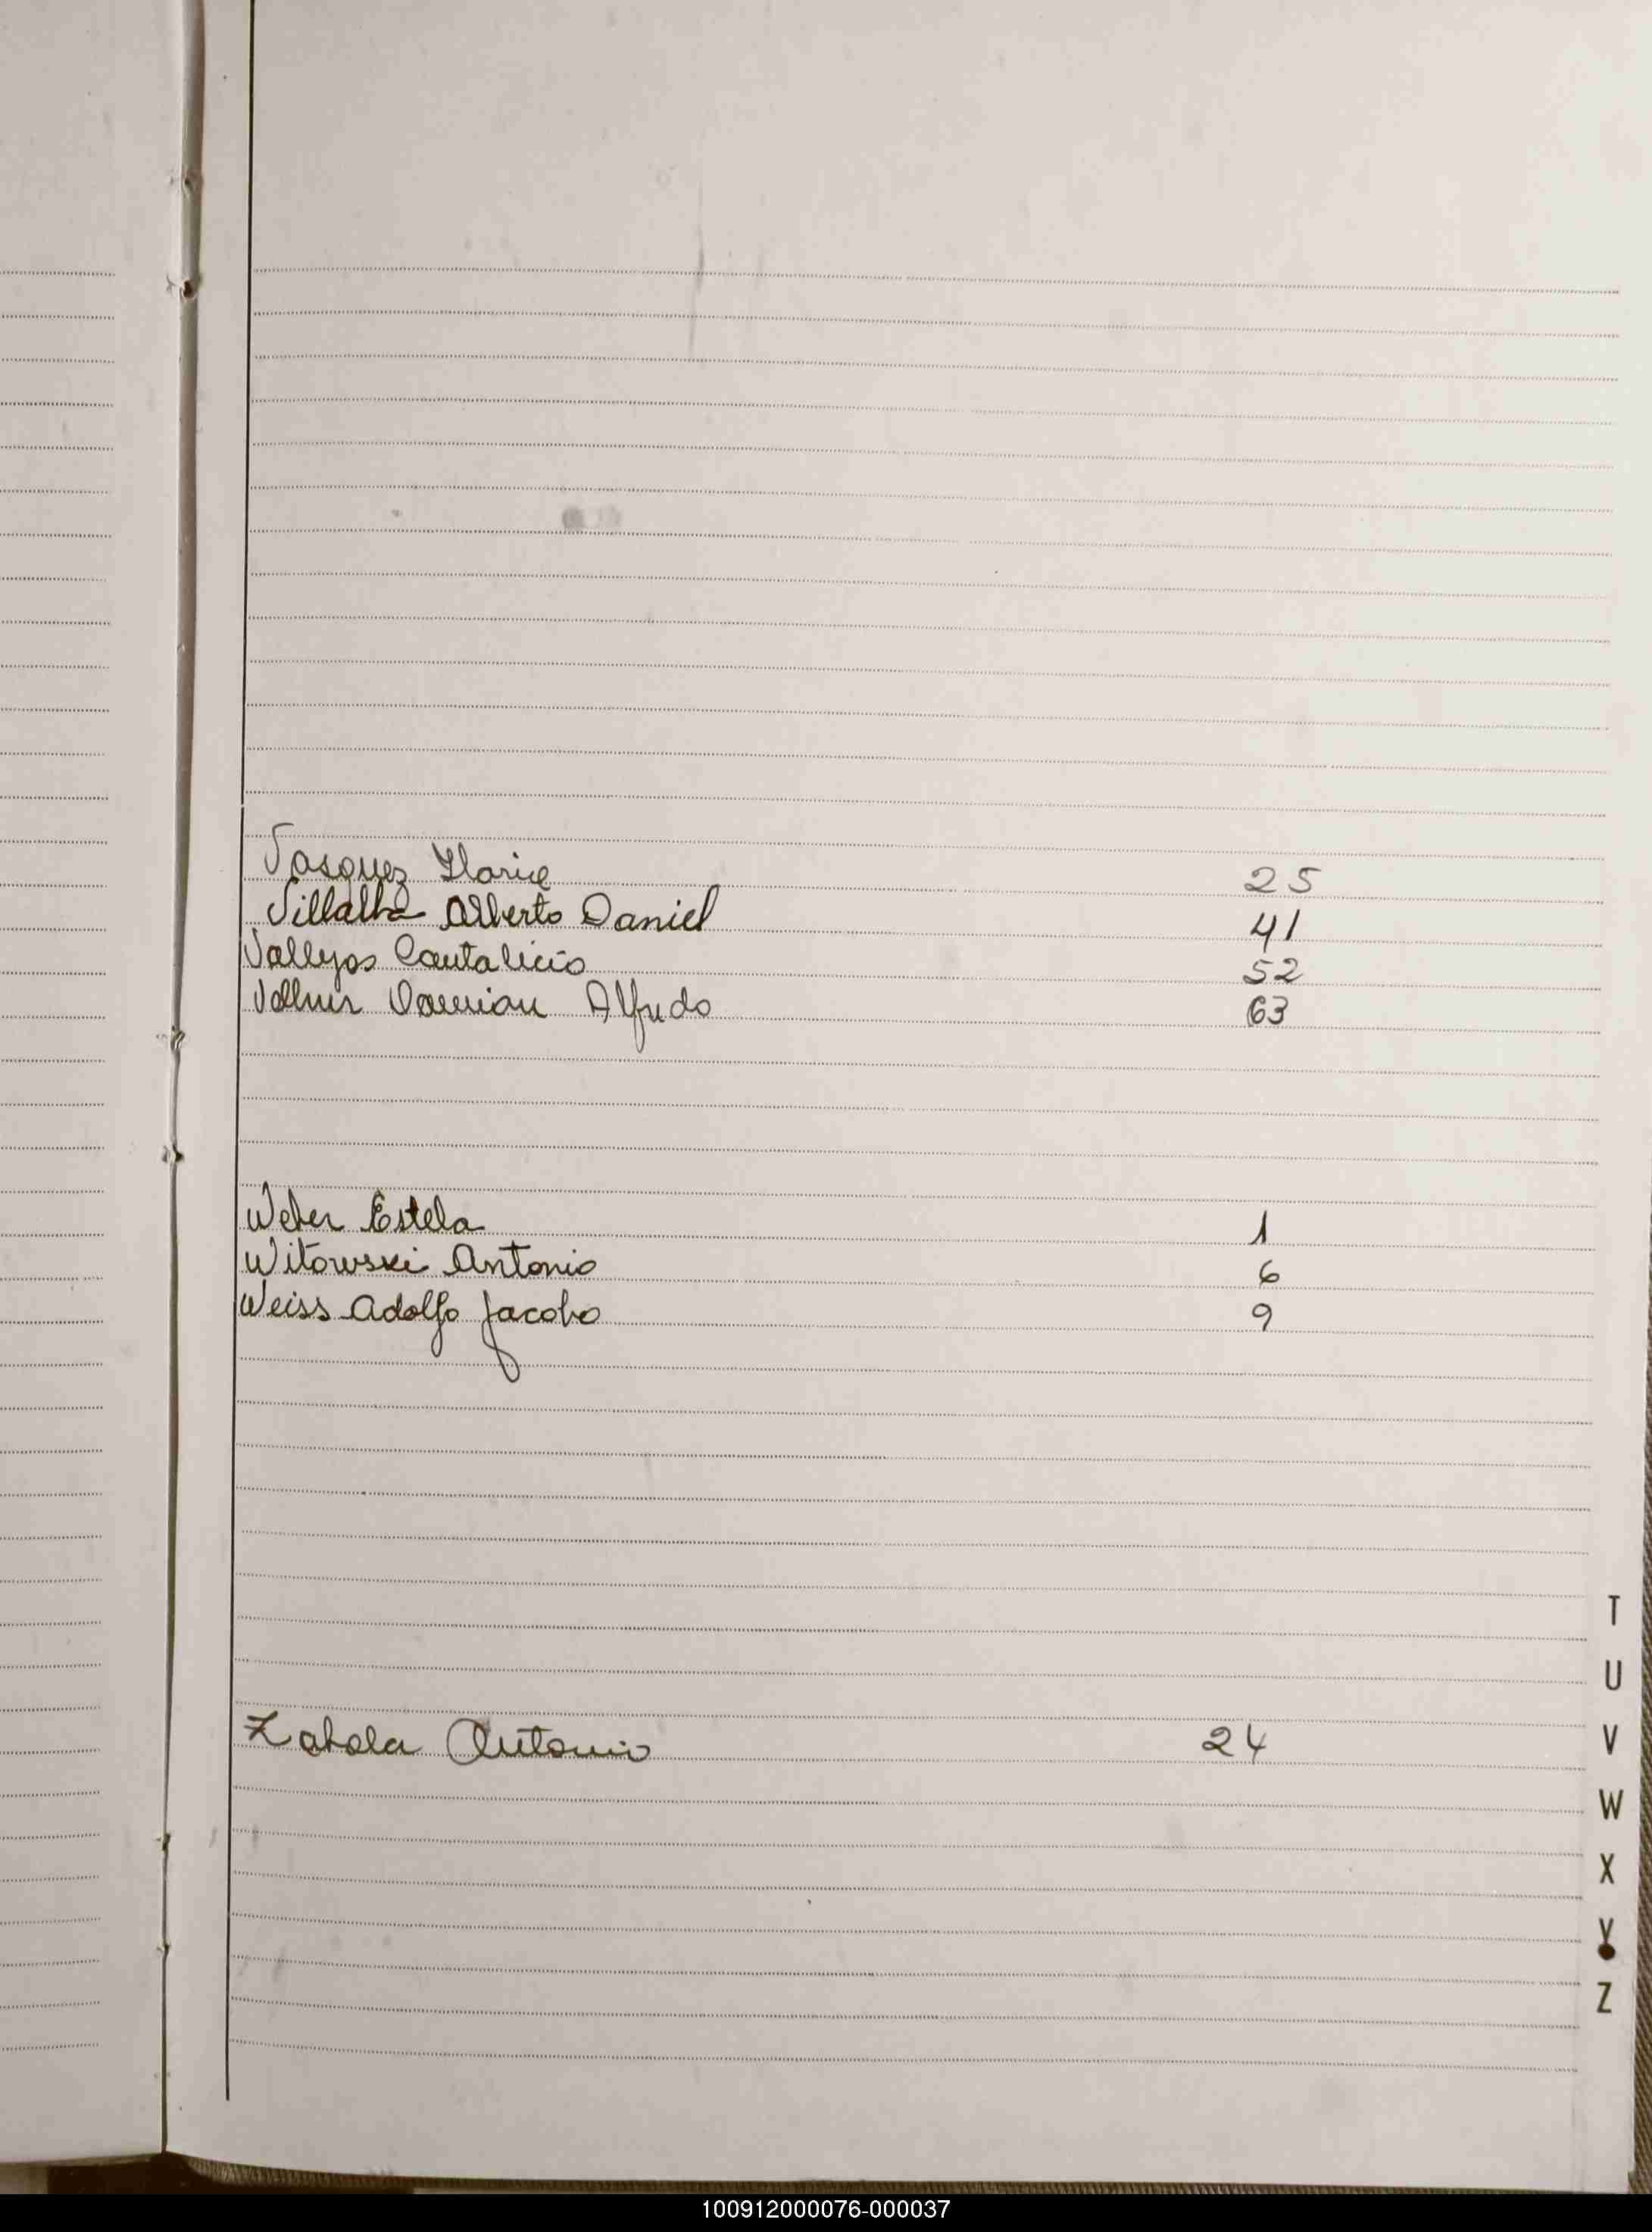 Vasquez Ilario 25
Villalba Alberto Daniel 41
Vallejos Cantalicio 52
Damian Alfredo 63
Weber Estela 1
Witowski Antonio 6
Weiss Adolfo Jacobo 9
Zabala Antonio 24
T
U
V
W
X
Y
Z
100912000076-000037